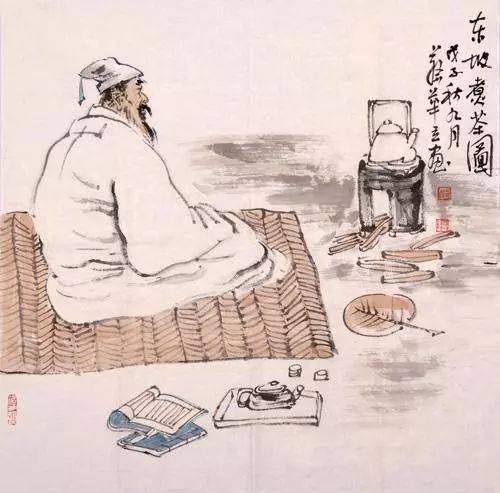 东坡煮茶圖
戊子秋九月
華 画